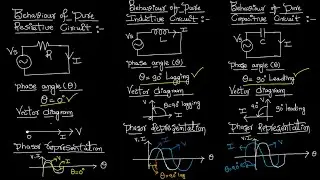 Behaviour of Pure
Resistive Circuit :-
Vs
R
I
phase angle (θ)
θ = 0°
Vector diagram
I V
Phasor representation
V.I
V
I
θ=0°
Behaviour of Pure
Inductive Circuit :-
I
L
Vs
phase angle (θ)
θ = 90° Lagging
Vector diagram
V
θ=90° lagging
I
Phasor Representation
V.I
V
I
θ=90° lag
Behaviour of Pure
Capacitive Circuit :-
I
C
Vs
phase angle (θ)
θ = 90° Leading
Vector diagram
I
90° leading
V
Phasor Representation
V.I
I
V